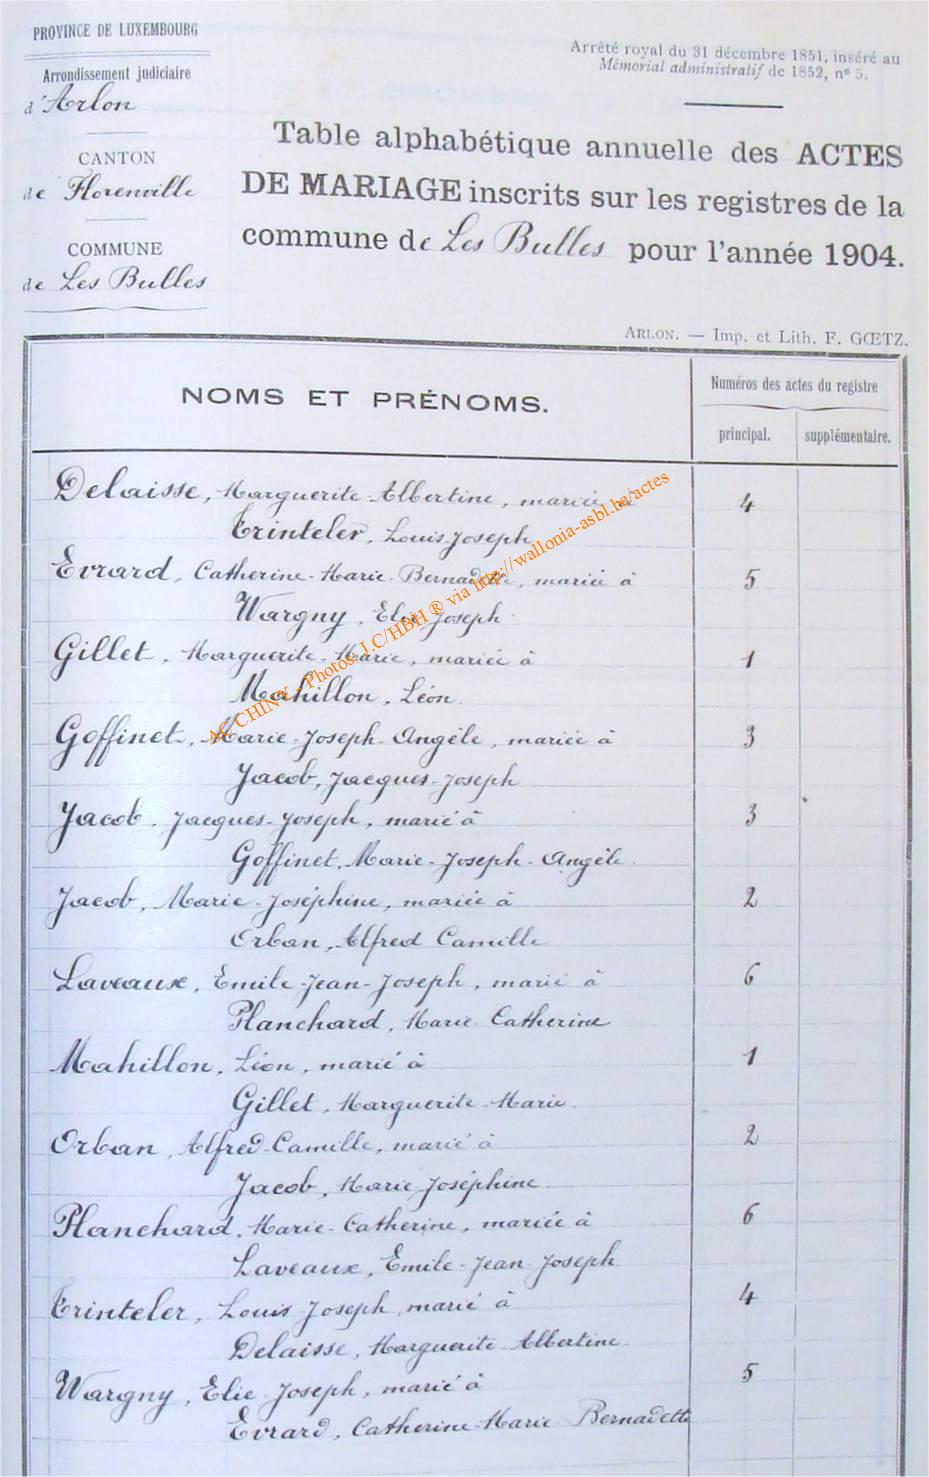 PROVINCE DE LUXEMBOURG
Arrondissement judiciaire
d'Arlon
CANTON
de Florenville
COMMUNE
de Les Bulles
Arrêté royal du 31 décembre 1851, inséré au
Mémorial administratif de 1852, nº 5.
Table alphabétique annuelle des ACTES
DE MARIAGE inscrits sur les registres de la
commune de Les Bulles pour l'année 1904.
ARLON. — Imp. et Lith. F. GŒTZ.
NOMS ET PRÉNOMS.
Numéros des actes du registre
principal. supplémentaire.
Delaisse, Marguerite-Albertine, mariée à 4
Trinteler, Louis-Joseph
Evrard, Catherine-Marie-Bernadette, mariée à 5
Wargny, Elie-Joseph.
Gillet, Marguerite-Marie, mariée à 1
Mahillon, Léon.
Goffinet, Marie-Joseph-Angèle, mariée à 3
Jacob, Jacques-Joseph
Jacob, Jacques-Joseph, marié à 3
Goffinet, Marie-Joseph-Angèle.
Jacob, Marie-Joséphine, mariée à 2
Orban, Alfred Camille
Laveaux, Emile-Jean-Joseph, marié à 6
Planchard, Marie-Catherine
Mahillon, Léon, marié à 1
Gillet, Marguerite-Marie.
Orban, Alfred-Camille, marié à 2
Jacob, Marie-Joséphine.
Planchard, Marie-Catherine, mariée à 6
Laveaux, Emile-Jean-Joseph.
Trinteler, Louis-Joseph, marié à 4
Delaisse, Marguerite Albertine.
Wargny, Elie-Joseph, marié à 5
Evrard, Catherine-Marie-Bernadette
AC CHINY - Photos J.C/HBH ® via http://wallonia-asbl.be/actes